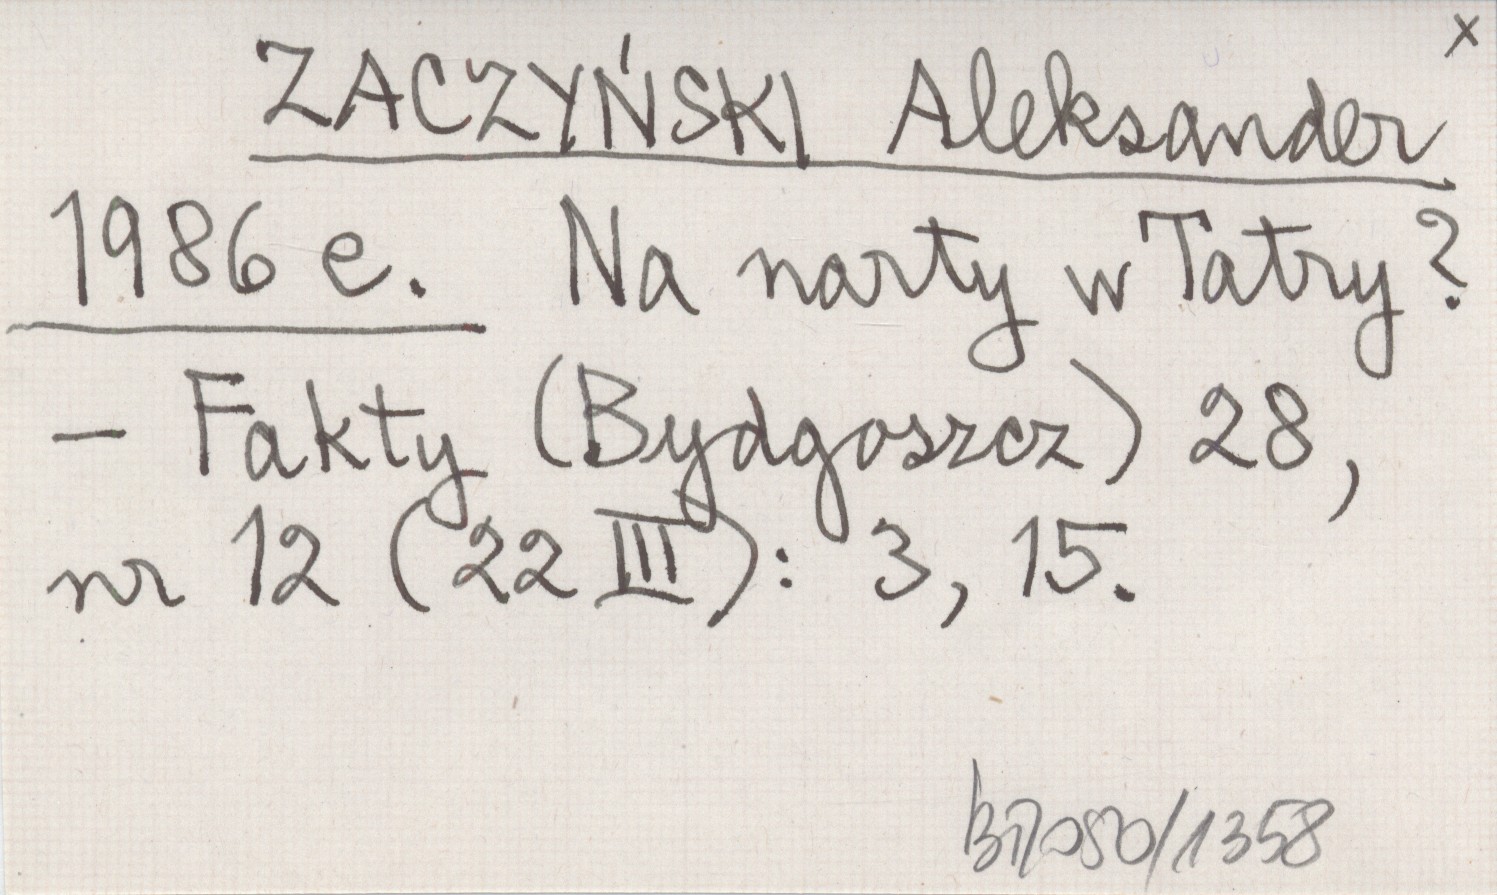 x
ZACZYŃSKI Aleksander
1986 e. Na narty w Tatry?
– Fakty (Bydgoszcz) 28,
nr 12 (22 III): 3, 15.